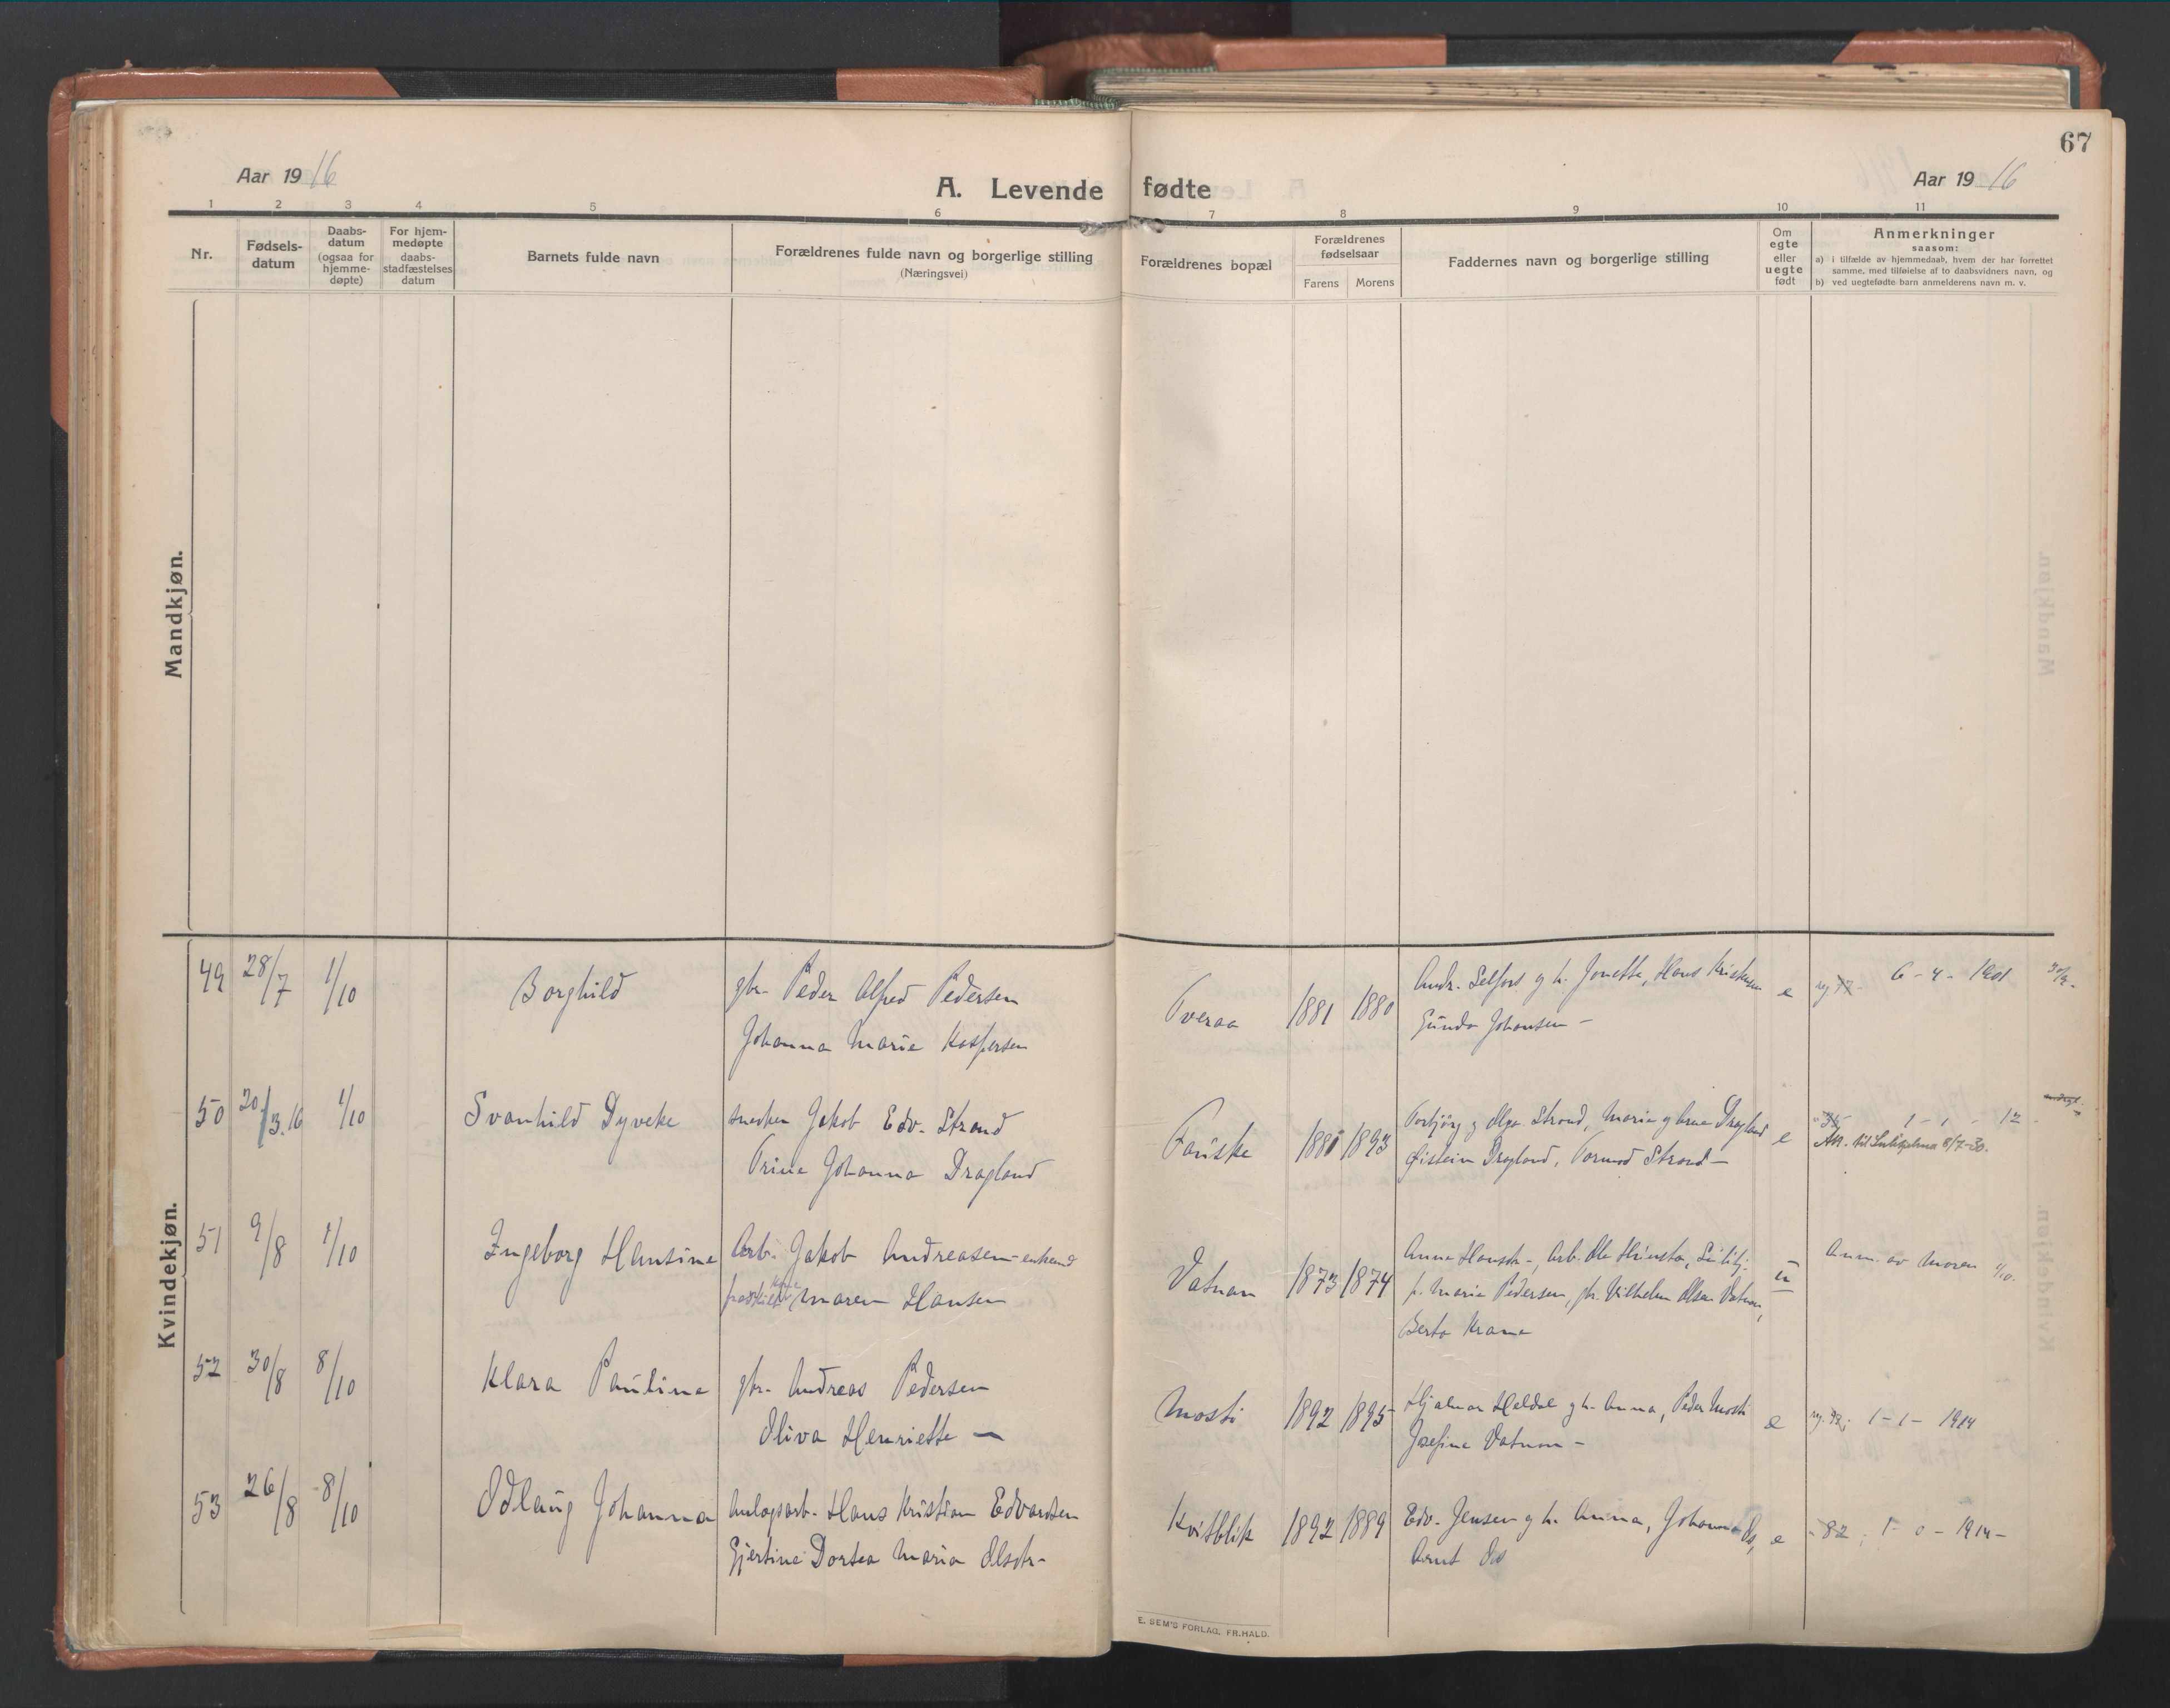 67
Aar 1916
A. Levende fødte
Aar 1916
1 2 3 4 5 6 7 8 9 10 11
Nr.
Fødsels-
datum
Daabs-
datum
(ogsaa for
hjemme-
døpte)
For hjem-
medøpte
daabs-
stadfæstelses
datum
Barnets fulde navn
Forældrenes fulde navn og borgerlige stilling
(Næringsvei)
Forældrenes bopæl
Forældrenes
fødselsaar
Farens Morens
Faddernes navn og borgerlige stilling
Om
egte
eller
uegte
født
Anmerkninger
saasom:
a) i tilfælde av hjemmedaab, hvem der har forrettet
samme, med tilføielse af to daabsvidners navn, og
b) ved uegtefødte barn anmelderens navn m. v.
Mandkjøn.
Kvindekjøn.
49 28/7 1/10 Borghild gbr. Peder Alfred Pedersen
Johanna Marie Kaspersen
Tveraa 1881 1880
Andr. Selfors og h. Jonette, Hans Kristensen
Gunda Johansen -
e
6 - 4 - 1901
50 20/3.16 1/10 Svanhild Dyveke snedker Jakob Edv. Strand
Trine Johanna Dragland
Fauske 1893
Torbjørg og Olga Strand, Marie og Dragland
Øistein Dragland, Tormod Strand -
e
1 - 1 - 12
Att. til Sulitjelma 8/7-30.
51 9/8 1/10 Ingeborg Hansine Arb. Jakob Andreasen - enkemand
Maren Hansen
Vatnan 1873 1874
Anna Hansdtr -, Arb. Ole
p. Marie Pedersen, Vilhelm Olsen Vatnan,
Berta
u
Anm. av moren 1/10.
52 30/8 8/10 Klara Pauline gbr. Andreas Pedersen
Oliva Henriette -
Mosti 1892 1895
Hjalmar Heldal og h. Anna, Peder Mosti
Josefine Vatnan -
e
1 - 1 - 1914
53 26/8 8/10 Odlaug Johanna Anlægsarb. Hans Kristian Edvardsen
Gjertine Dortea Maria Olsdtr -
Kvitblik 1892 1889
Edv. Jensen og h. Anna, Johanna Ds,
Arnt Ds
e
82; 1 - 0 - 1914 -
E. SEM'S FORLAG, FR.HALD.